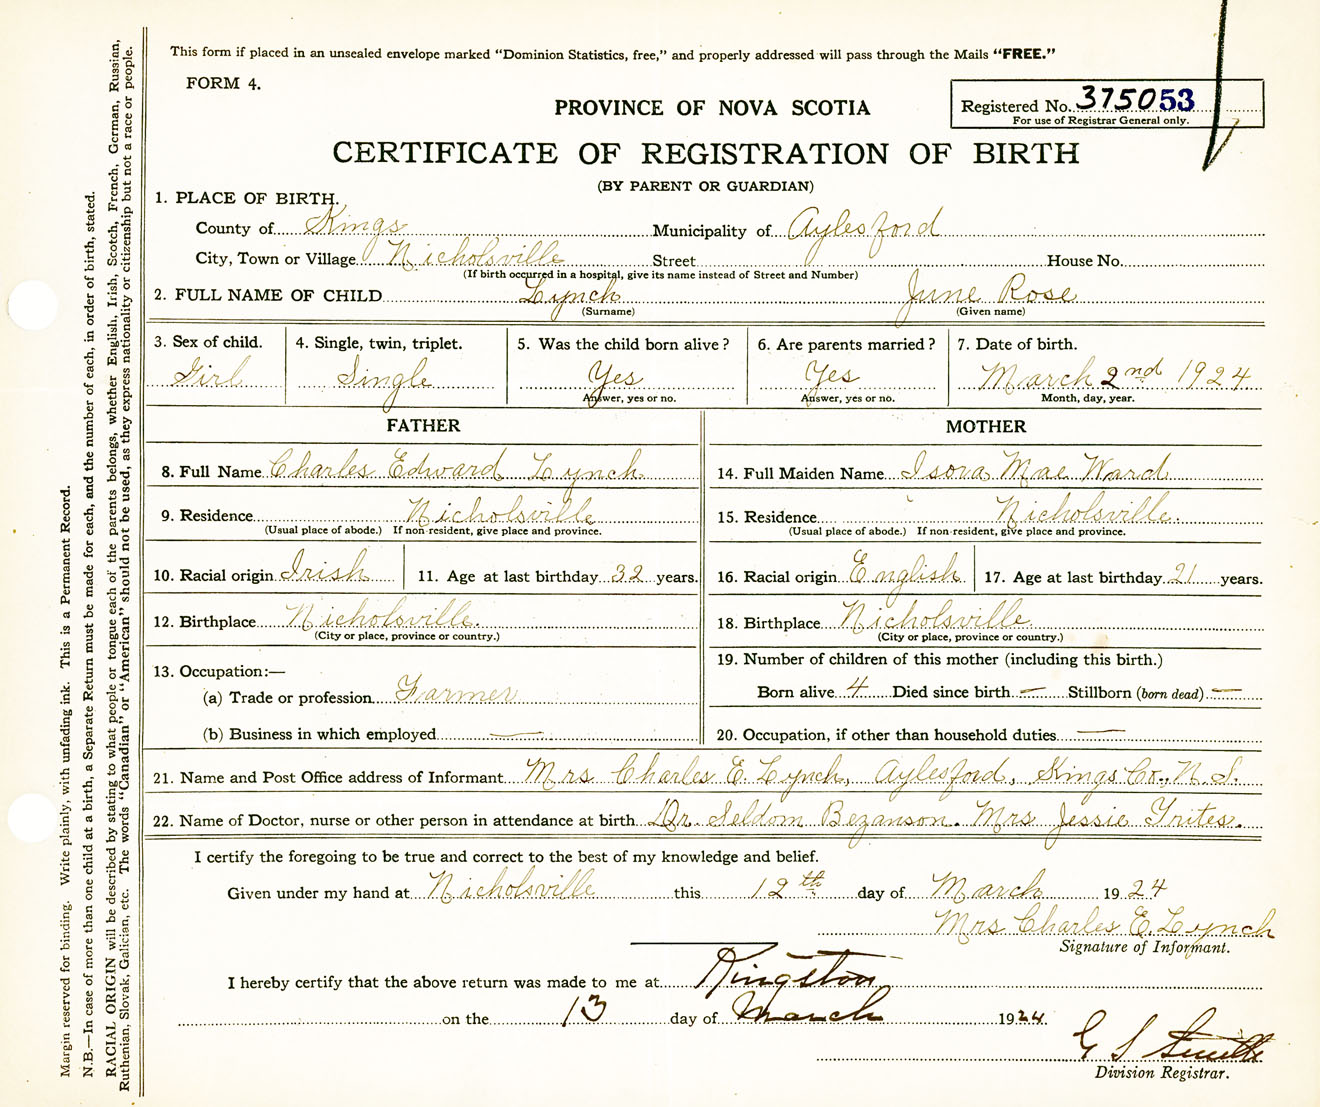 This form if placed in an unsealed envelope marked “Dominion Statistics, free,” and properly addressed will pass through the Mails “FREE.”
FORM 4.
Registered No. 375053
For use of Registrar General only.
PROVINCE OF NOVA SCOTIA
CERTIFICATE OF REGISTRATION OF BIRTH
(BY PARENT OR GUARDIAN)
1. PLACE OF BIRTH.
County of Kings Municipality of Aylesford
City, Town or Village Nicholsville Street House No.
(If birth occurred in a hospital, give its name instead of Street and Number)
2. FULL NAME OF CHILD Lynch June Rose
(Surname) (Given name)
3. Sex of child. 4. Single, twin, triplet. 5. Was the child born alive? 6. Are parents married? 7. Date of birth.
Girl Single Yes Yes March 2nd 1924
Answer, yes or no. Answer, yes or no. Month, day, year.
FATHER MOTHER
8. Full Name Charles Edward Lynch 14. Full Maiden Name Isora Mae Ward
9. Residence Nicholsville 15. Residence Nicholsville.
(Usual place of abode.) If non-resident, give place and province. (Usual place of abode.) If non-resident, give place and province.
10. Racial origin Irish 11. Age at last birthday 32 years. 16. Racial origin English 17. Age at last birthday 21 years.
12. Birthplace Nicholsville. 18. Birthplace Nicholsville
(City or place, province or country.) (City or place, province or country.)
13. Occupation:— 19. Number of children of this mother (including this birth.)
(a) Trade or profession Farmer Born alive 4 Died since birth — Stillborn (born dead) —
(b) Business in which employed — 20. Occupation, if other than household duties —
21. Name and Post Office address of Informant Mrs Charles E. Lynch, Aylesford, Kings Co., N.S.
22. Name of Doctor, nurse or other person in attendance at birth Dr. Seldom Bezanson. Mrs Jessie Trites.
I certify the foregoing to be true and correct to the best of my knowledge and belief.
Given under my hand at Nicholsville this 12th day of March 1924
Mrs Charles E. Lynch
Signature of Informant.
I hereby certify that the above return was made to me at Kingston
on the 13 day of March 1924.
G S Smith
Division Registrar.
Margin reserved for binding. Write plainly, with unfading ink. This is a Permanent Record.
N.B.—In case of more than one child at a birth, a Separate Return must be made for each, and the number of each, in order of birth, stated.
RACIAL ORIGIN will be described by stating to what people or tongue each of the parents belongs, whether English, Irish, Scotch, French, German, Russian,
Ruthenian, Slovak, Galician, etc. The words “Canadian” or “American” should not be used, as they express nationality or citizenship but not a race or people.